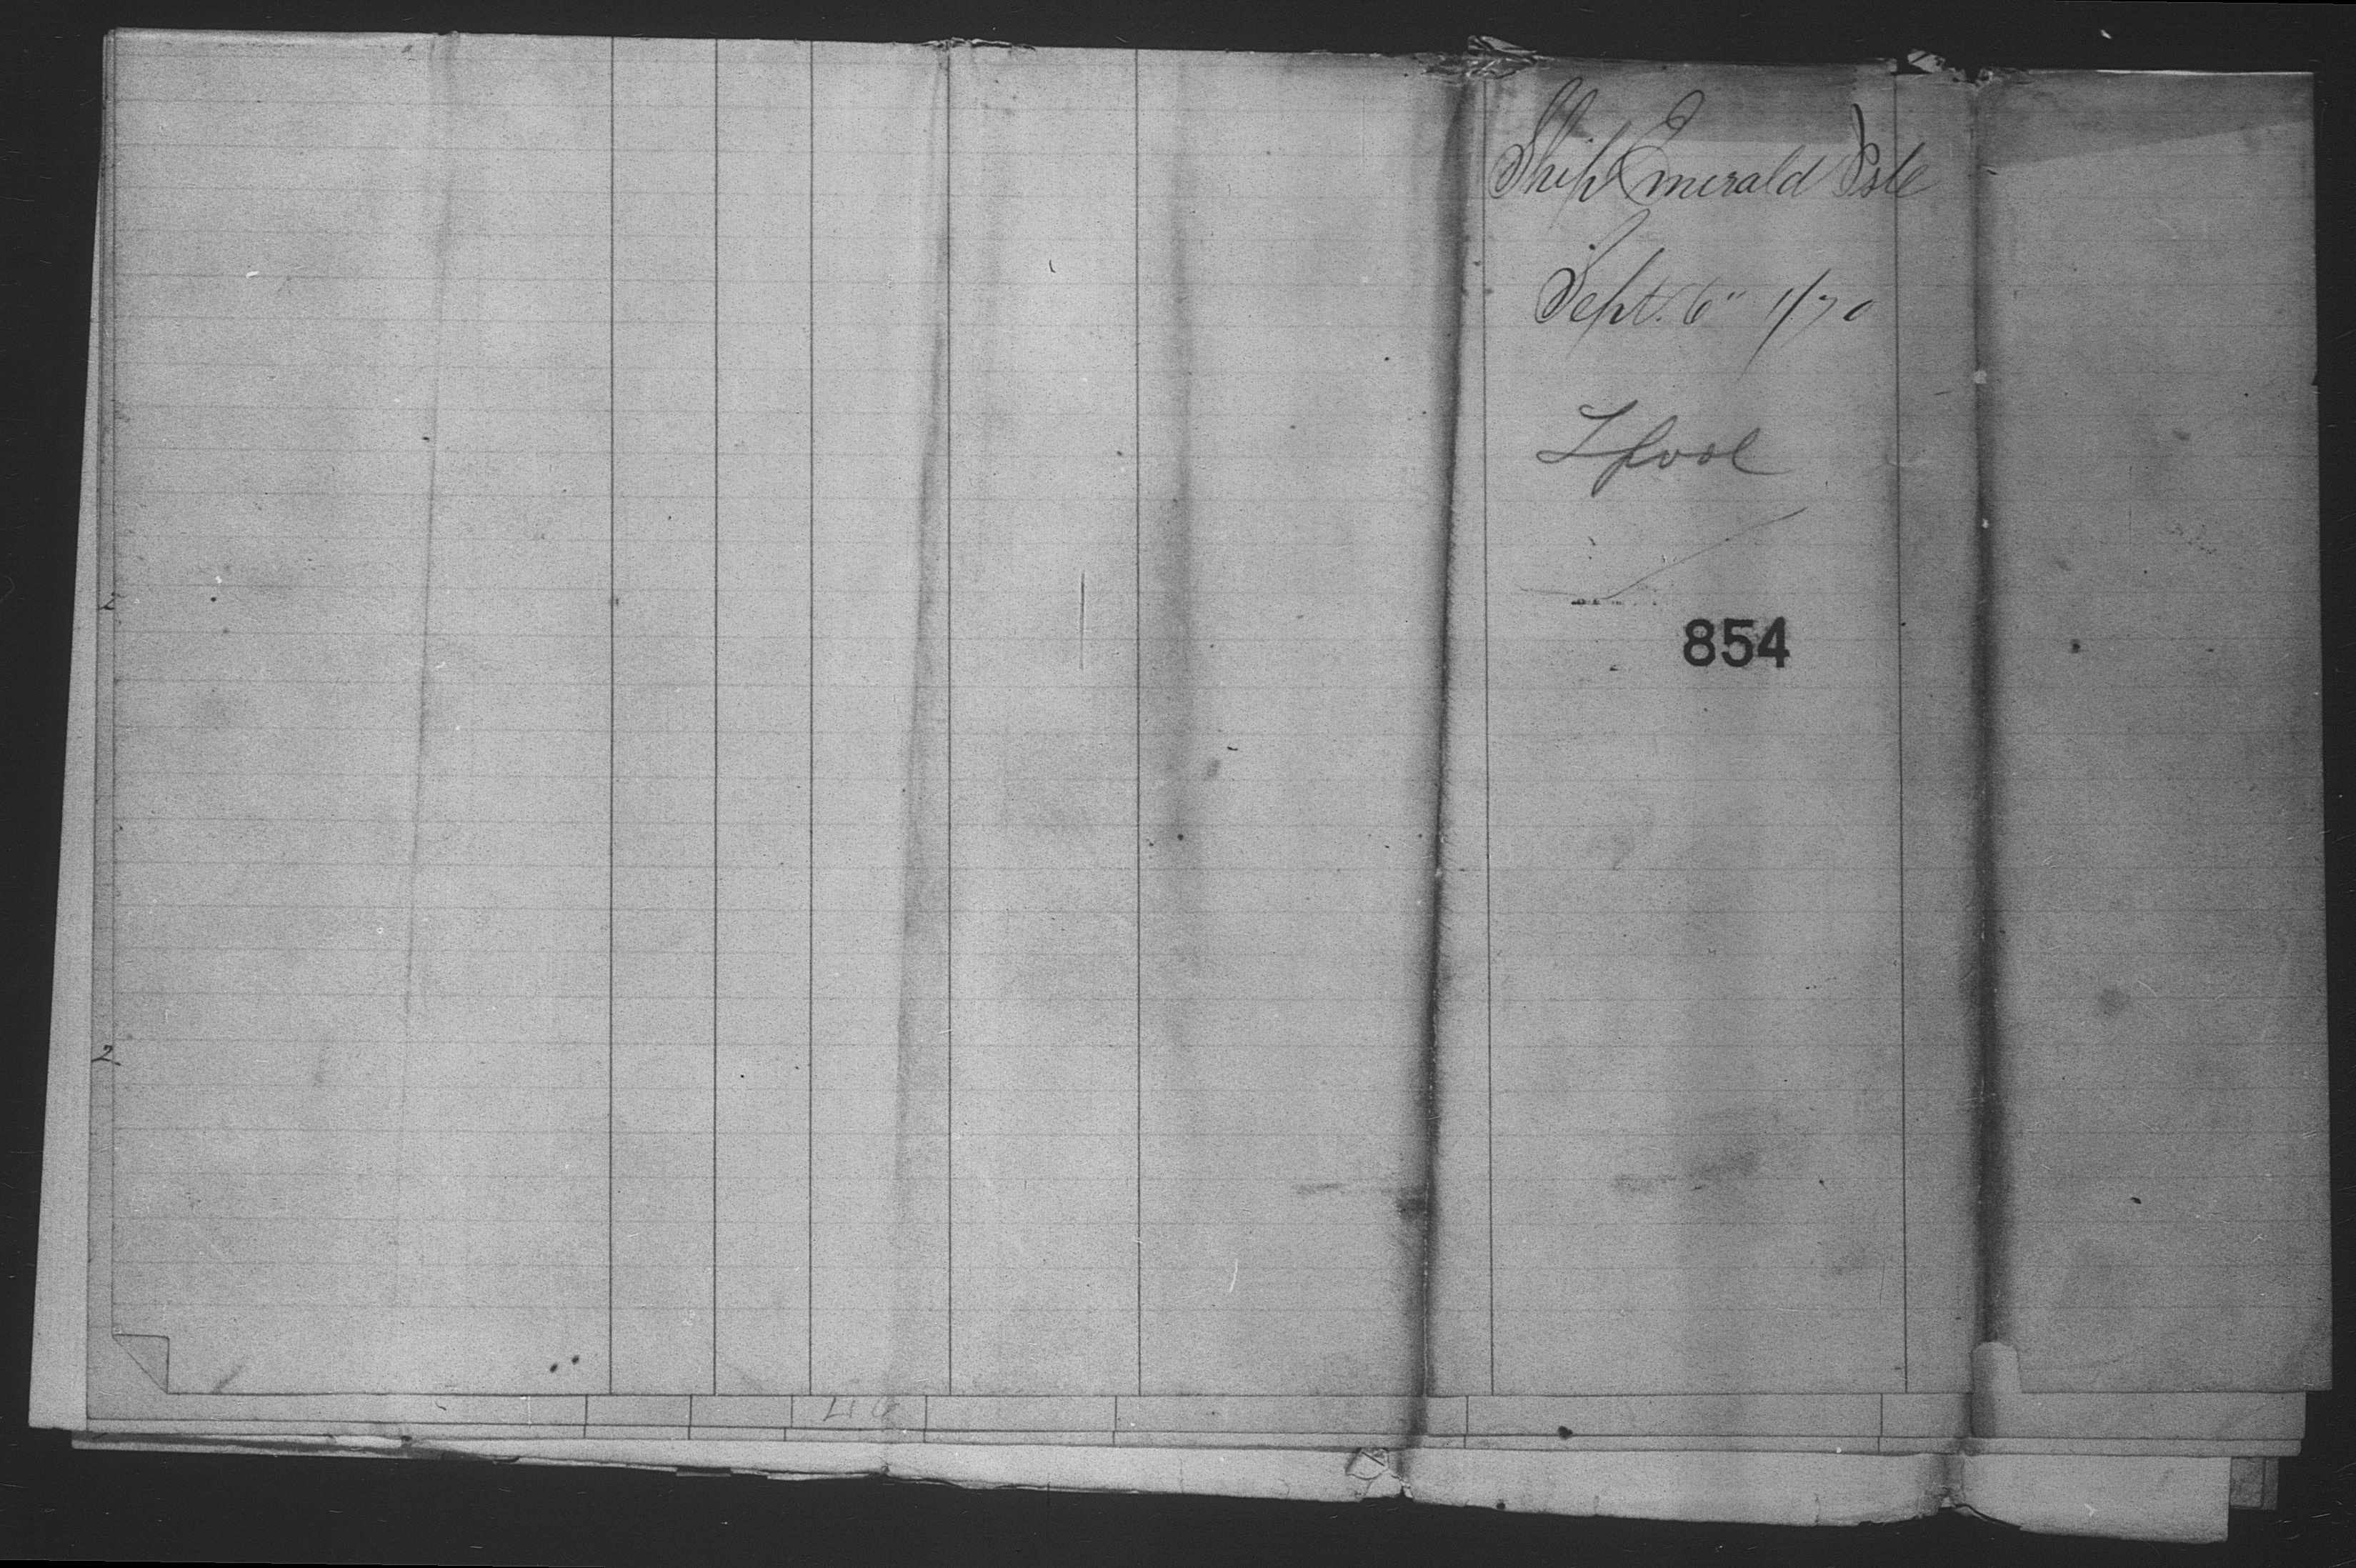 Ship Emerald Isle
Sept. 6" 1/70
Lpool
854
2